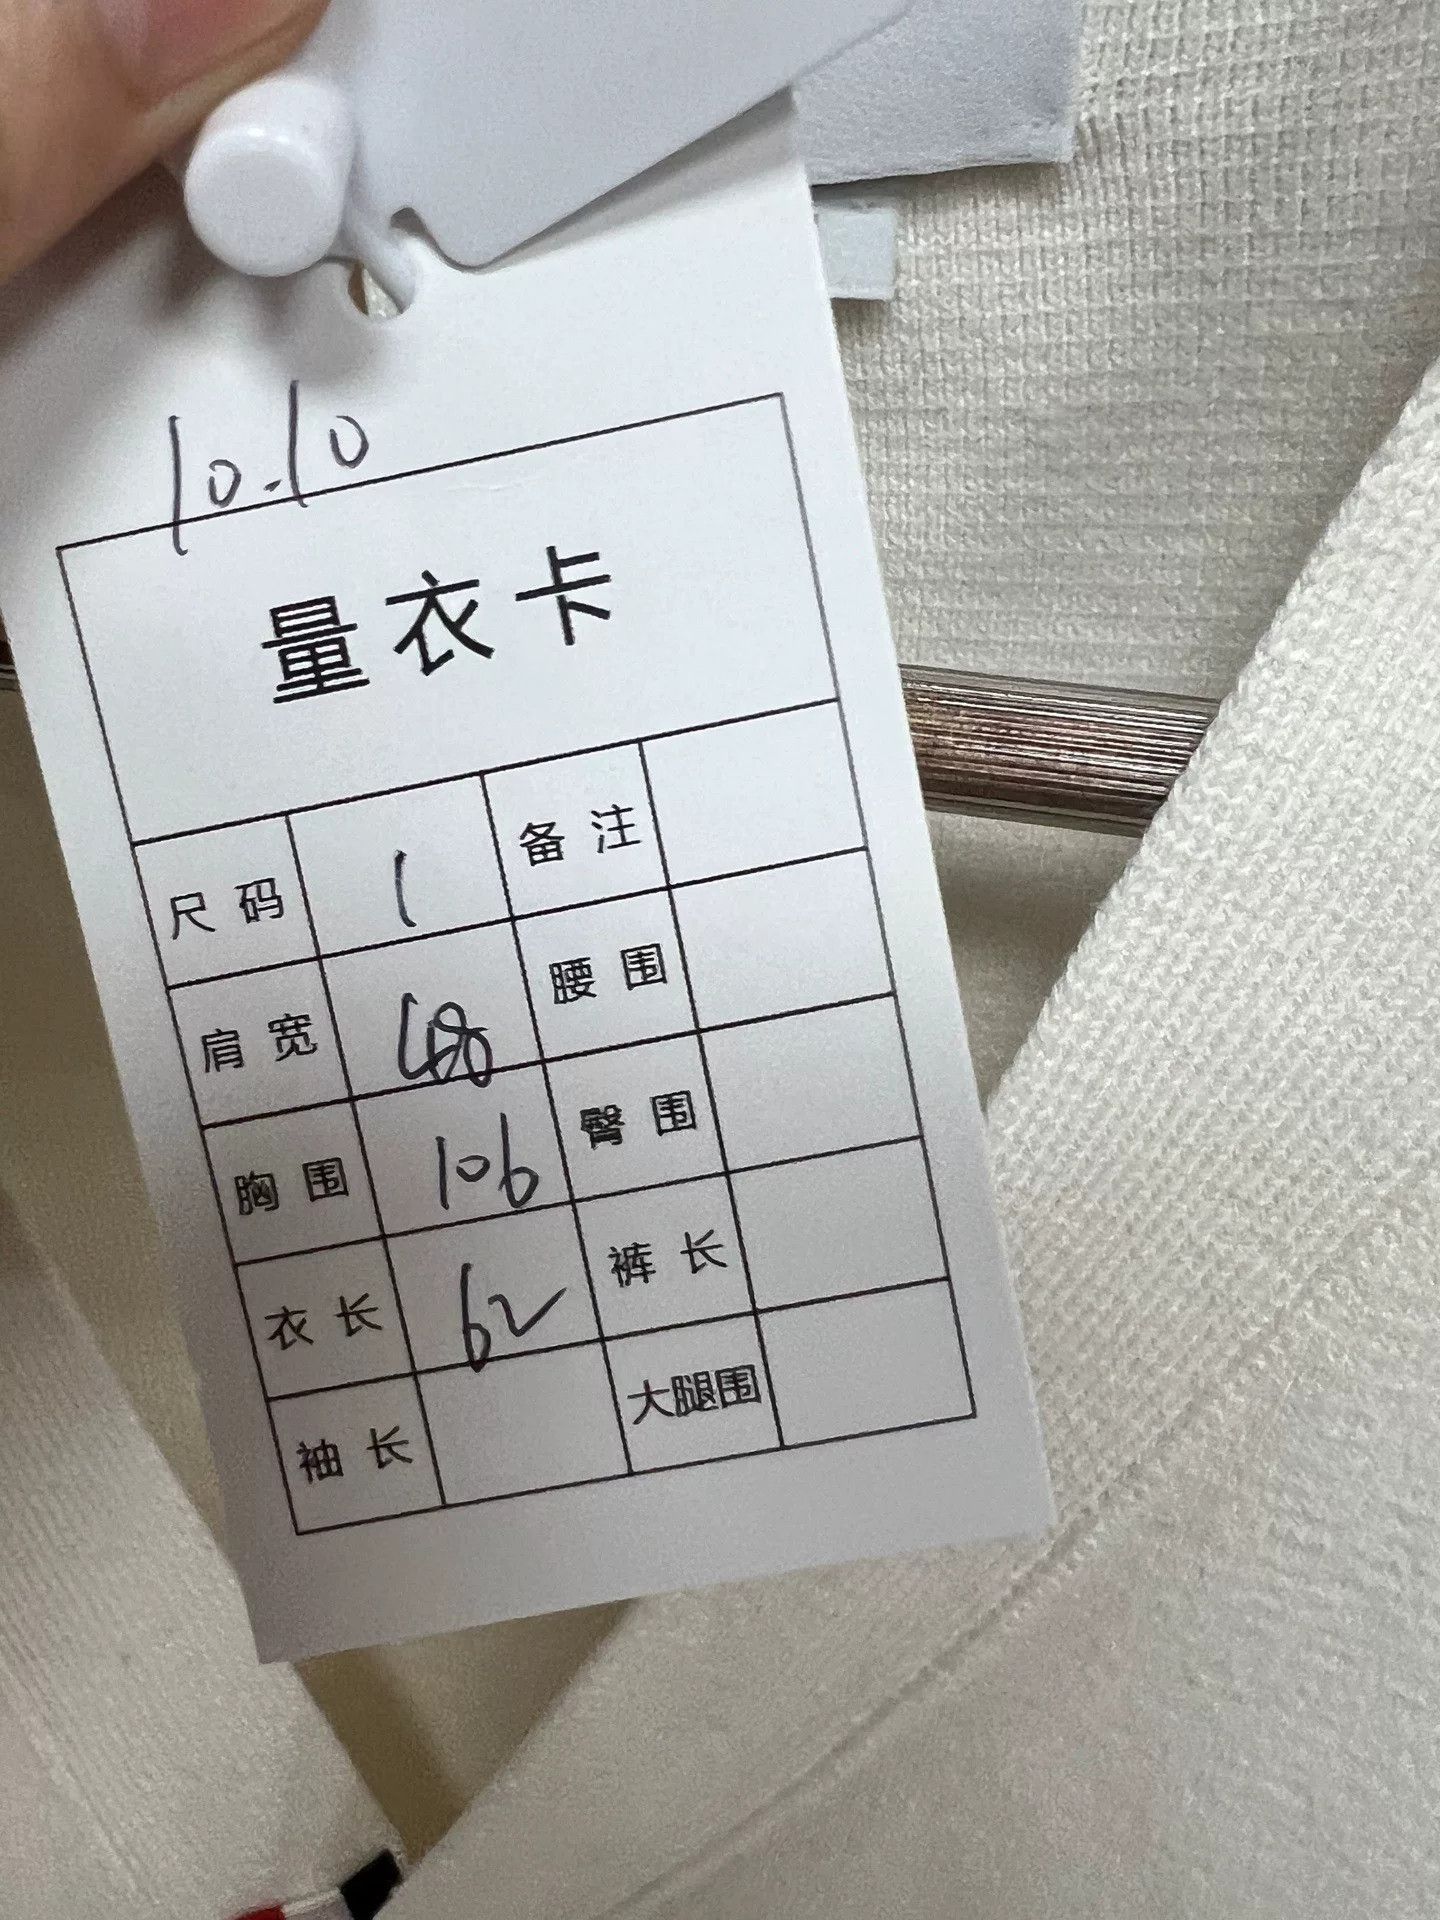 10.10
量衣卡
尺码 1 备注
肩宽 48 腰围
胸围 106 臀围
衣长 62 裤长
袖长 大腿围